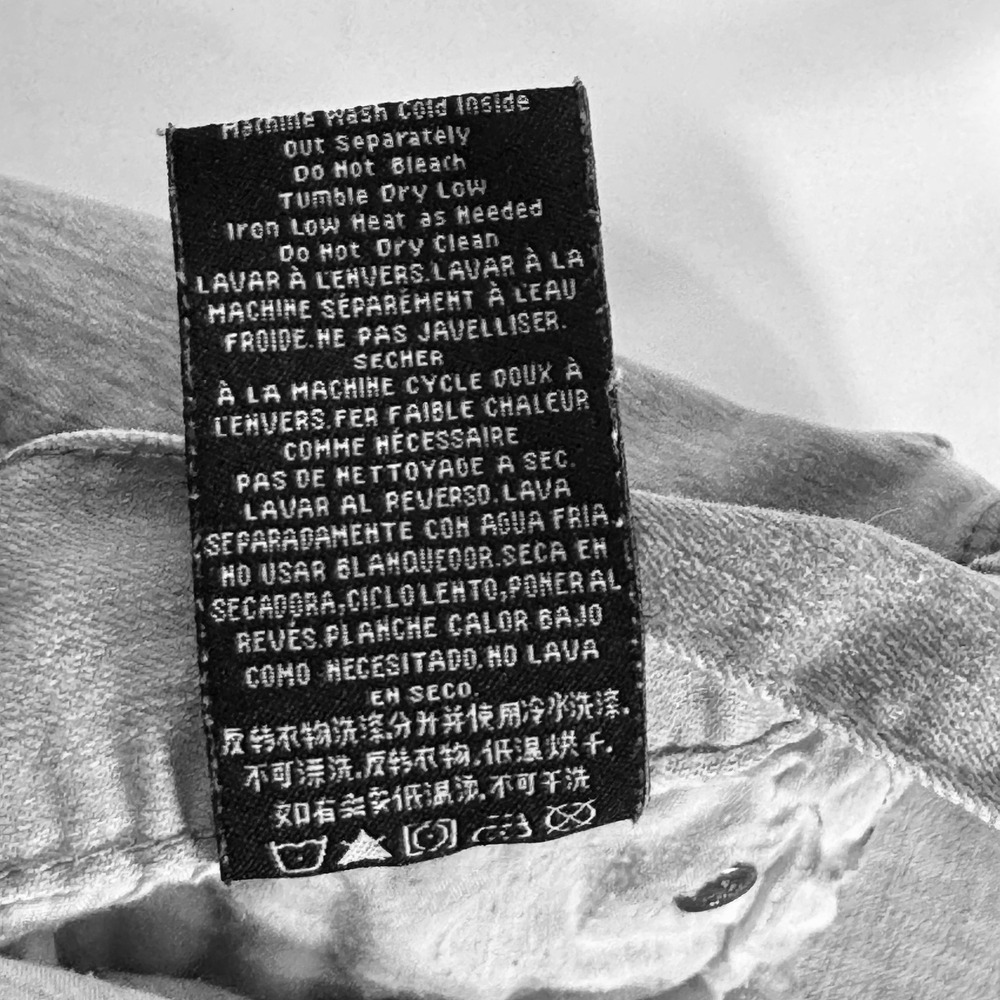 Machine Wash Cold Inside
Out Separately
Do Not Bleach
Tumble Dry Low
Iron Low Heat as Needed
Do Not Dry Clean
LAVAR À L'ENVERS.LAVAR À LA
MACHINE SÉPARÉMENT À L'EAU
FROIDE.NE PAS JAVELLISER.
SECHER
À LA MACHINE CYCLE DOUX À
L'ENVERS.FER FAIBLE CHALEUR
COMME NÉCESSAIRE
PAS DE NETTOYAGE A SEC.
LAVAR AL REVERSO.LAVA
SEPARADAMENTE CON AGUA FRIA.
NO USAR BLANQUEDOR.SECA EN
SECADORA,CICLO LENTO,PONER AL
REVÉS.PLANCHE CALOR BAJO
COMO NECESITADO.NO LAVA
EN SECO.
反转衣物洗涤.分开并使用冷水洗涤.
不可漂洗.反转衣物.低温烘干.
如有需要低温烫.不可干洗